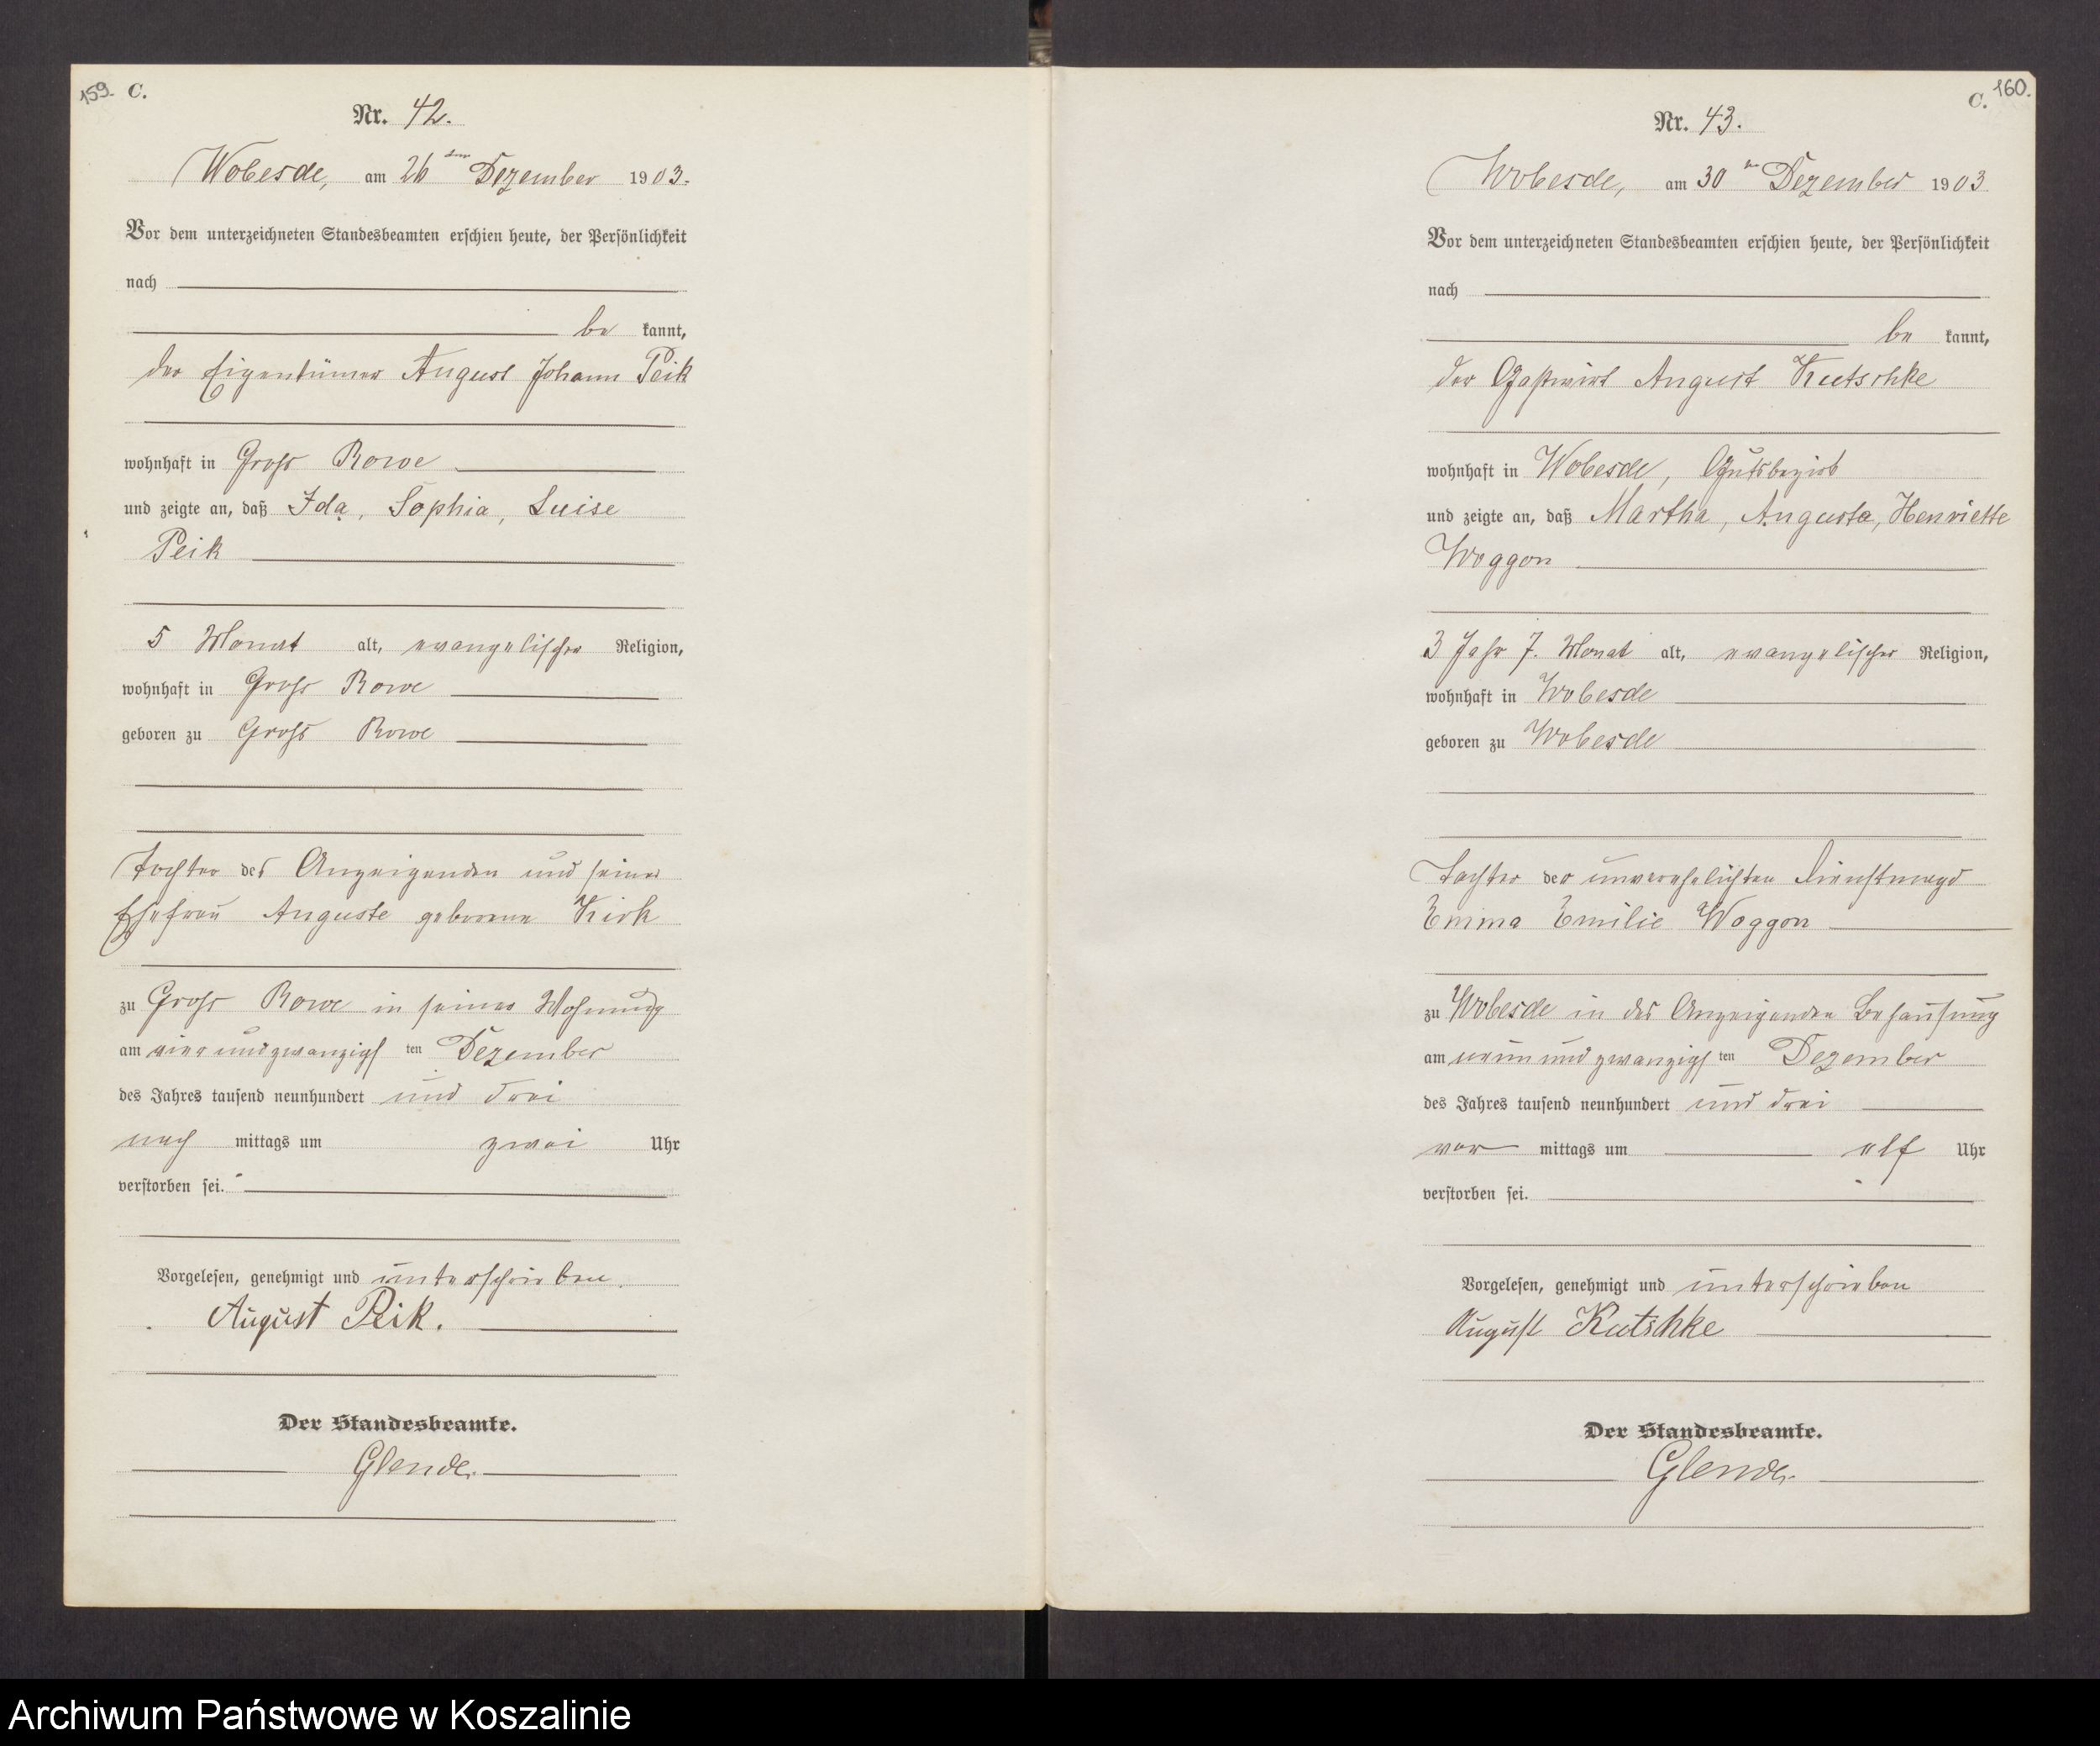 159. C.
Nr. 42.
Wobesde, am 26 ten Dezember 1903.
Vor dem unterzeichneten Standesbeamten erschien heute, der Persönlichkeit
nach
be kannt,
der Eigentümer August Johann Peik
wohnhaft in Groß Rowe
und zeigte an, daß Ida, Sophia, Luise
Peik
5 Monat alt, evangelischer Religion,
wohnhaft in Groß Rowe
geboren zu Groß Rowe
Tochter des Anzeigenden und seiner
Ehefrau Auguste geborene Kirk
zu Groß Rowe in seiner Wohnung
am vierundzwanzigsten Dezember
des Jahres tausend neunhundert und drei
nach mittags um zwei Uhr
verstorben sei.
Vorgelesen, genehmigt und unterschrieben.
August Peik.
Der Standesbeamte.
Glende.
C. 160.
Nr. 43.
Wobesde, am 30 ten Dezember 1903
Vor dem unterzeichneten Standesbeamten erschien heute, der Persönlichkeit
nach
be kannt,
der Gastwirt August Kutschke
wohnhaft in Wobesde, Gutsbezirk
und zeigte an, daß Martha, Augusta, Henriette
Woggon
3 Jahr 7. Monat alt, evangelischer Religion,
wohnhaft in Wobesde
geboren zu Wobesde
Tochter der unverehelichten Dienstmagd
Emma Emilie Woggon
zu Wobesde in des Anzeigenden Behausung
am neunundzwanzigsten Dezember
des Jahres tausend neunhundert und drei
vor mittags um elf Uhr
verstorben sei.
Vorgelesen, genehmigt und unterschrieben
August Kutschke
Der Standesbeamte.
Glende.
Archiwum Państwowe w Koszalinie